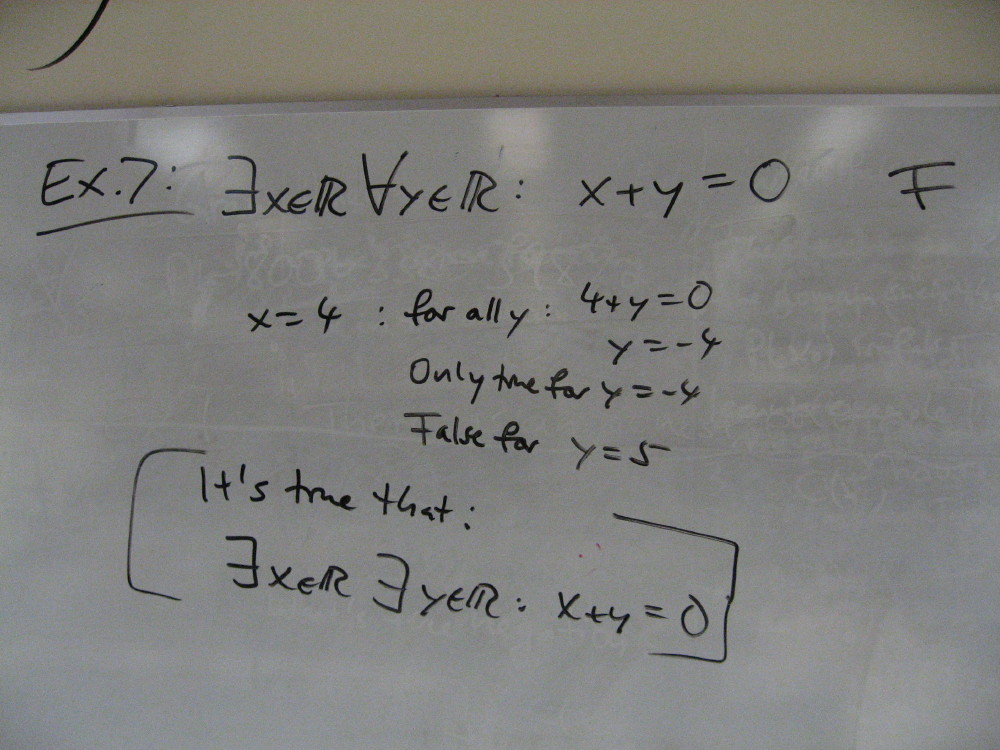 Ex.7: ∃x∈ℝ ∀y∈ℝ: x+y=0 F
x=4 : for all y: 4+y=0
y=-4
Only true for y=-4
False for y=5
It's true that:
∃x∈ℝ ∃y∈ℝ: x+y=0